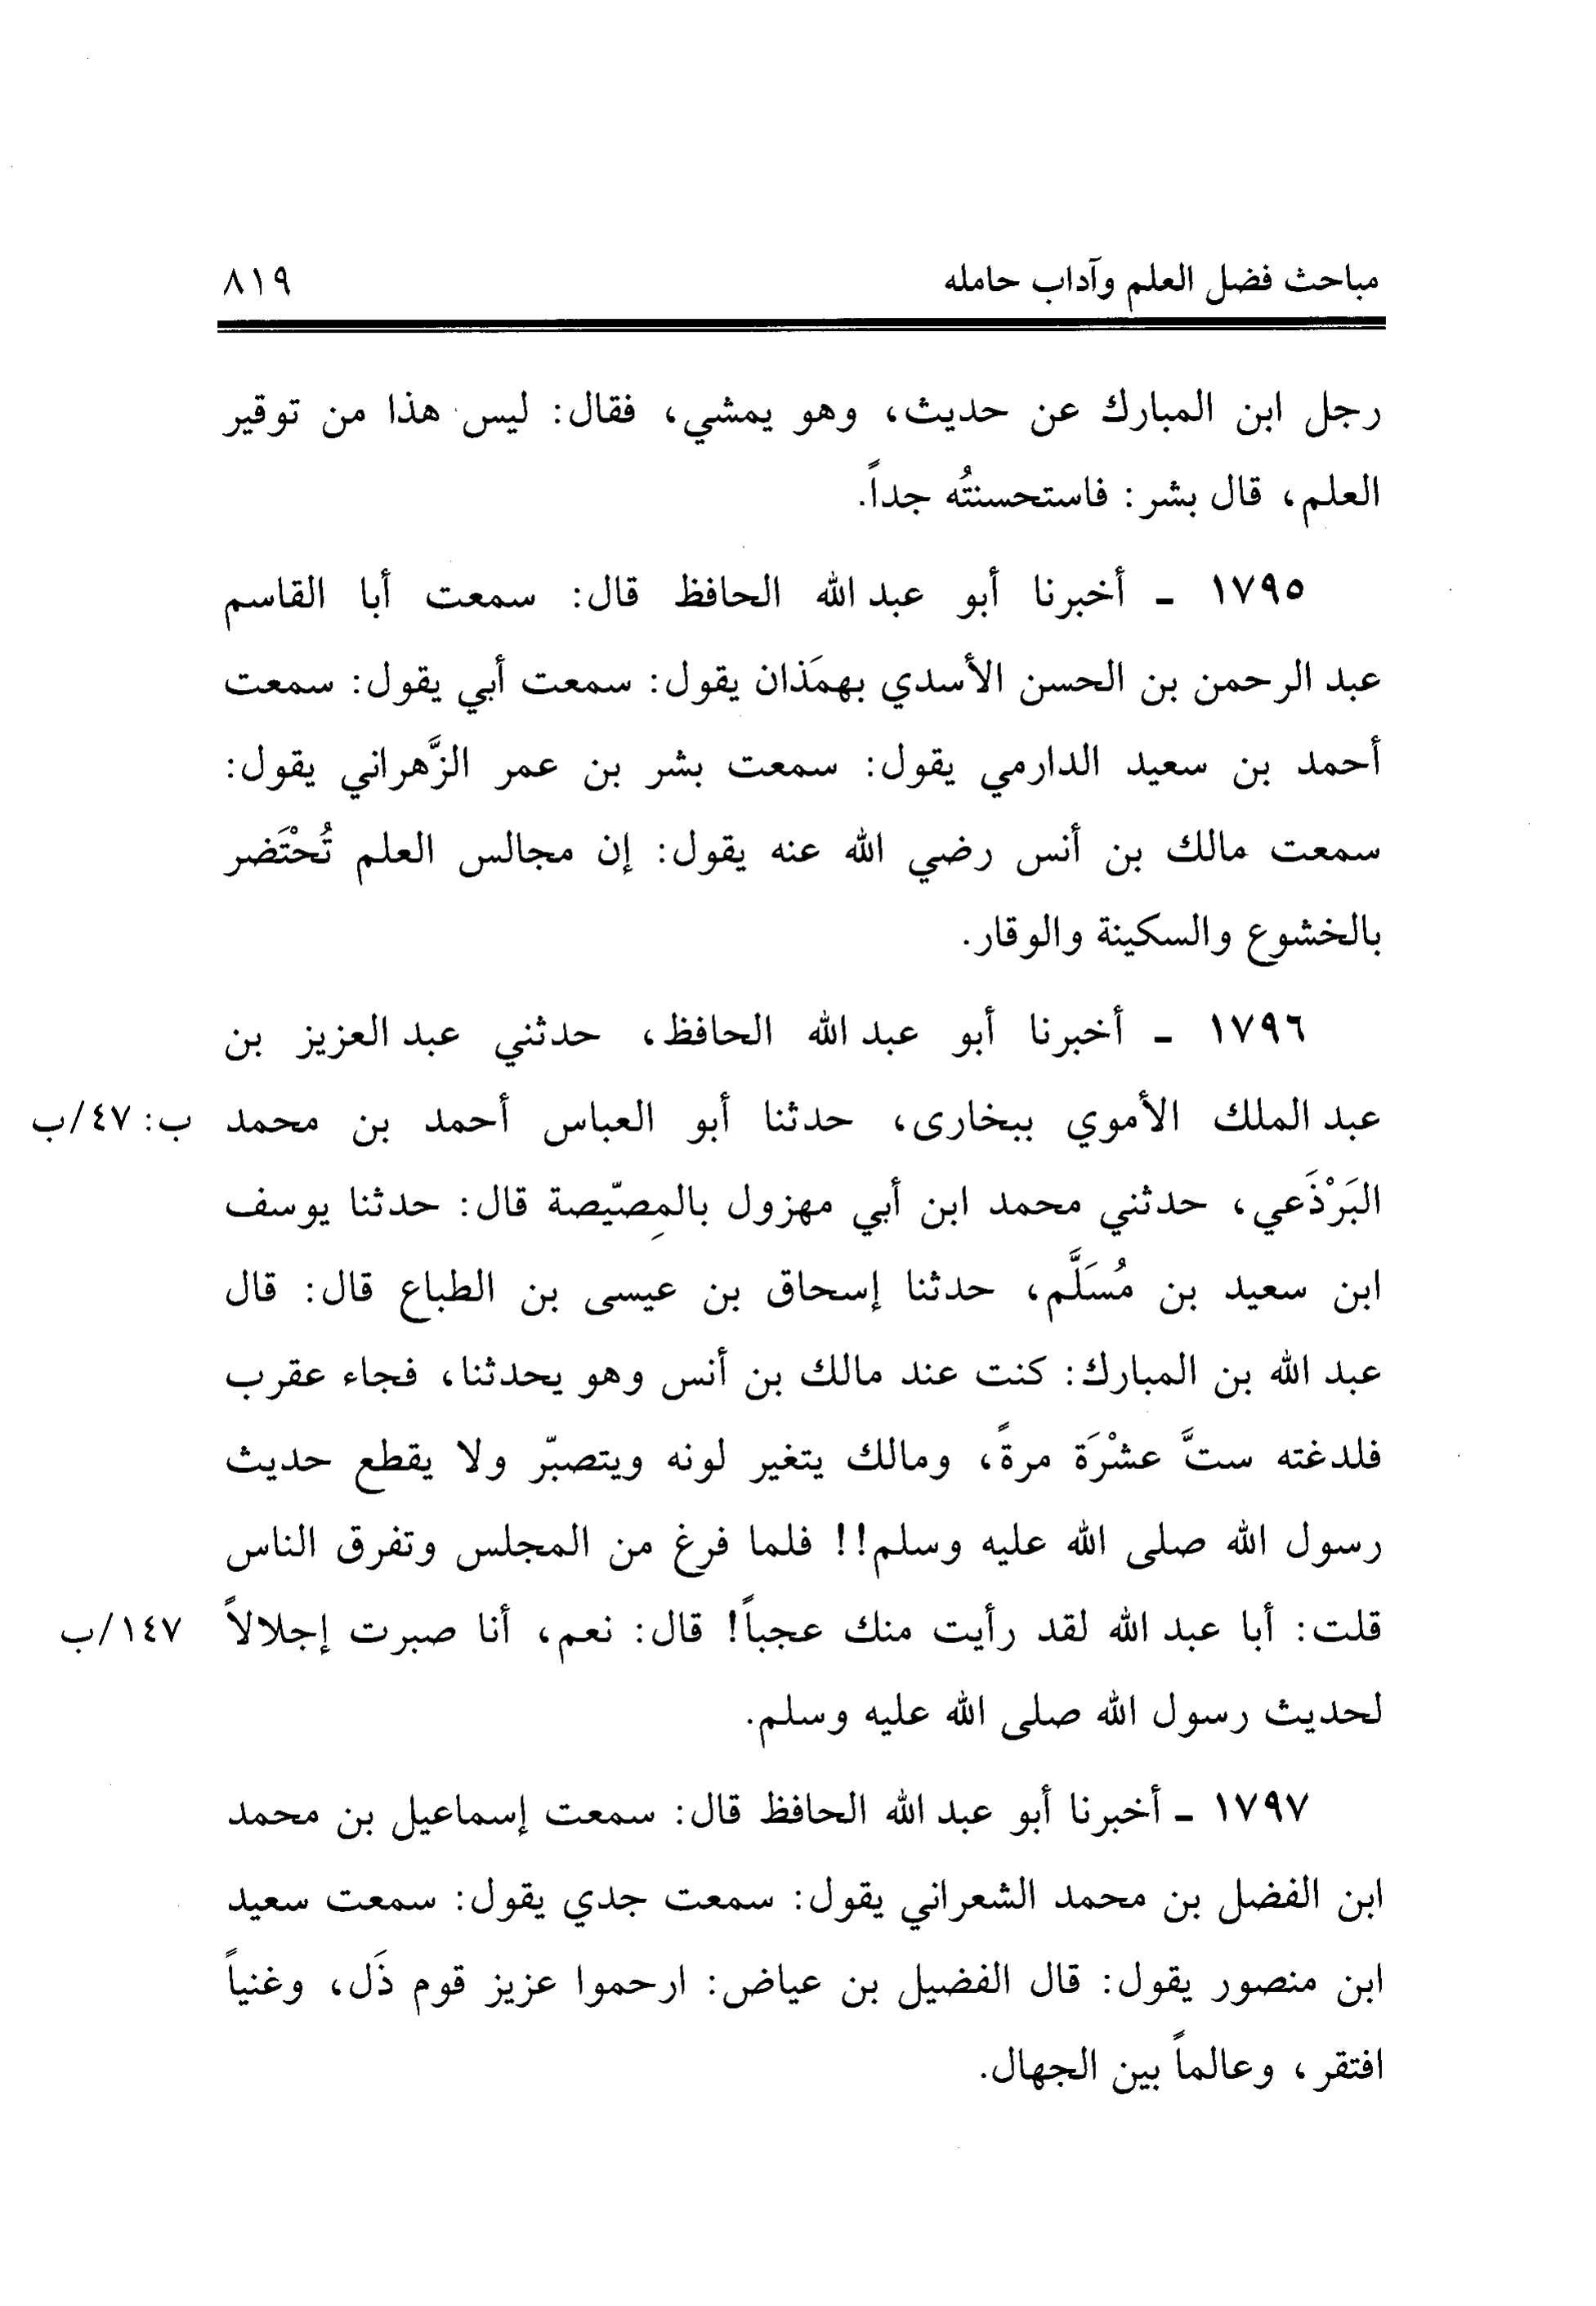 مباحث فضل العلم وآداب حامله ٨١٩
رجل ابن المبارك عن حديث، وهو يمشي، فقال: ليس هذا من توقير
العلم، قال بشر: فاستحسنتُه جداً.
١٧٩٥ - أخبرنا أبو عبد الله الحافظ قال: سمعت أبا القاسم
عبد الرحمن بن الحسن الأسدي بهمَذان يقول: سمعت أبي يقول: سمعت
أحمد بن سعيد الدارمي يقول: سمعت بشر بن عمر الزَّهراني يقول:
سمعت مالك بن أنس رضي الله عنه يقول: إن مجالس العلم تُحْتَضر
بالخشوع والسكينة والوقار.
١٧٩٦ - أخبرنا أبو عبد الله الحافظ، حدثني عبد العزيز بن
عبد الملك الأموي ببخارى، حدثنا أبو العباس أحمد بن محمد ب: ٤٧/ب
البَرْذَعي، حدثني محمد ابن أبي مهزول بالمِصيّصة قال: حدثنا يوسف
ابن سعيد بن مُسَلَّم، حدثنا إسحاق بن عيسى بن الطباع قال: قال
عبد الله بن المبارك: كنت عند مالك بن أنس وهو يحدثنا، فجاء عقرب
فلدغته ستَّ عشْرَة مرةً، ومالك يتغير لونه ويتصبّر ولا يقطع حديث
رسول الله صلى الله عليه وسلم!! فلما فرغ من المجلس وتفرق الناس
قلت: أبا عبد الله لقد رأيت منك عجباً! قال: نعم، أنا صبرت إجلالاً ١٤٧/ب
لحديث رسول الله صلى الله عليه وسلم.
١٧٩٧ - أخبرنا أبو عبد الله الحافظ قال: سمعت إسماعيل بن محمد
ابن الفضل بن محمد الشعراني يقول: سمعت جدي يقول: سمعت سعيد
ابن منصور يقول: قال الفضيل بن عياض: ارحموا عزيز قوم ذَل، وغنياً
افتقر، وعالماً بين الجهال.